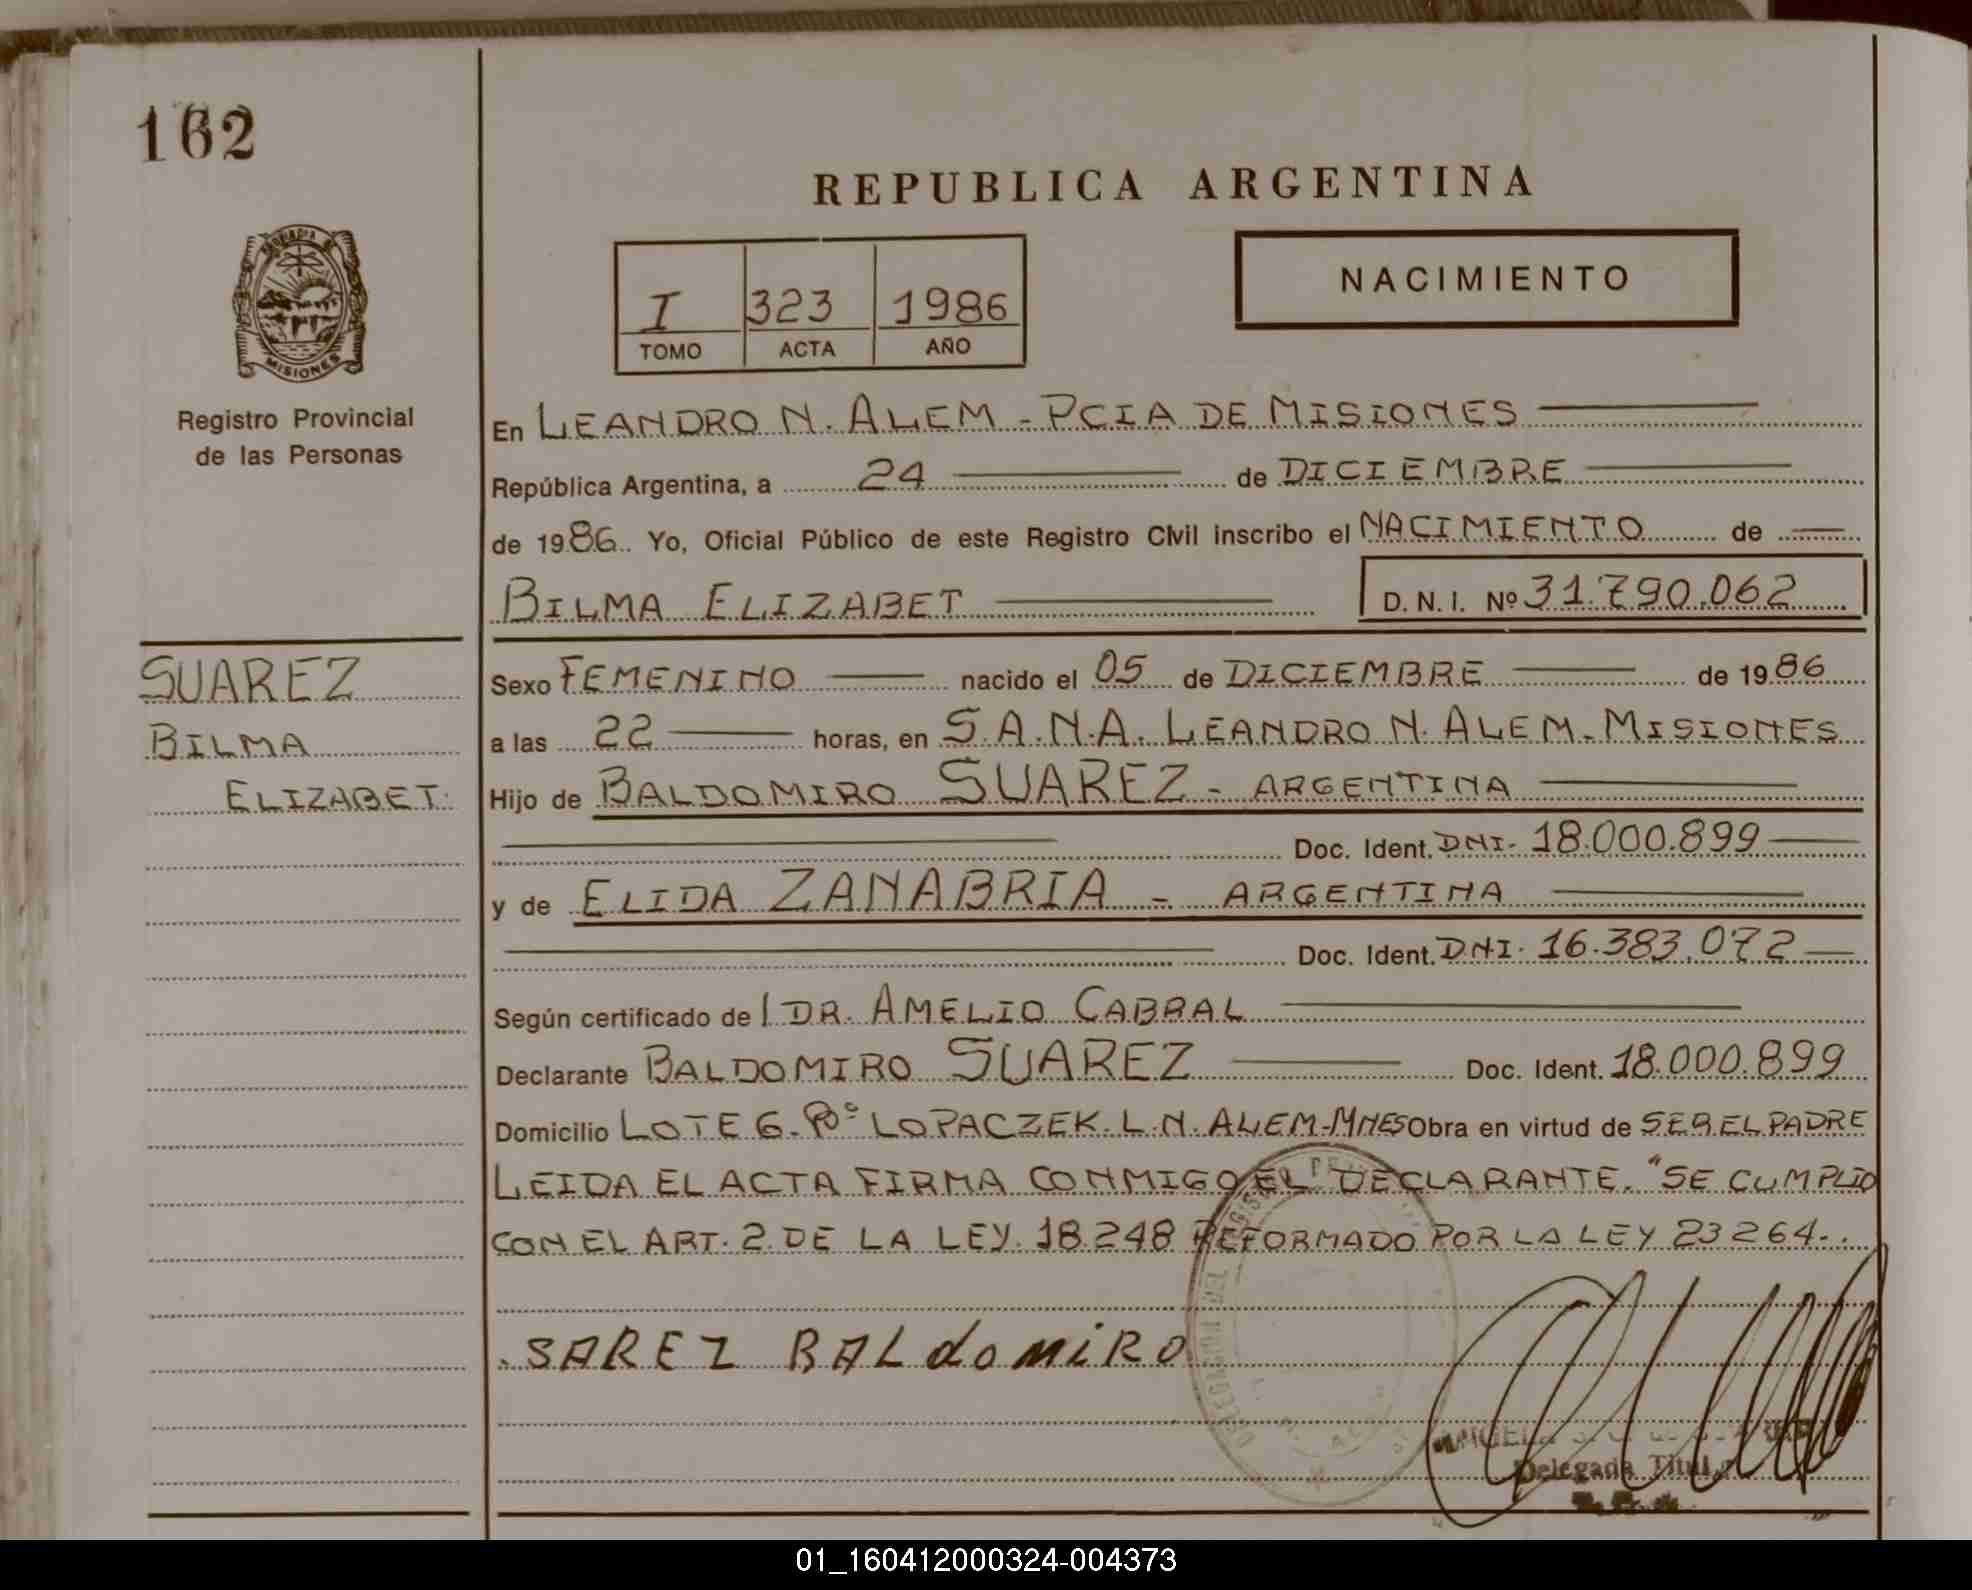 162
REPUBLICA ARGENTINA
NACIMIENTO
I 323 1986
TOMO ACTA AÑO
MISIONES
Registro Provincial
de las Personas
En LEANDRO N. ALEM - PCIA DE MISIONES
República Argentina, a 24 de DICIEMBRE
de 1986. Yo, Oficial Público de este Registro Civil inscribo el NACIMIENTO de
BILMA ELIZABET D. N. I. Nº 31.790.062
SUAREZ
BILMA
ELIZABET.
Sexo FEMENINO nacido el 05 de DICIEMBRE de 1986
a las 22 horas, en S.A.N.A. LEANDRO N. ALEM - MISIONES
Hijo de BALDOMIRO SUAREZ - ARGENTINA
Doc. Ident. DNI. 18.000.899
y de ELIDA ZANABRIA - ARGENTINA
Doc. Ident. DNI. 16.383.072
Según certificado de l DR. AMELIO CABRAL
Declarante BALDOMIRO SUAREZ Doc. Ident. 18.000.899
Domicilio LOTE 6. Pº LOPACZEK. L.N. ALEM-MNES Obra en virtud de SER EL PADRE
LEIDA EL ACTA FIRMA CONMIGO EL DECLARANTE. "SE CUMPLIO
CON EL ART. 2 DE LA LEY. 18.248 REFORMADO POR LA LEY 23264..
SAREZ BALdoMiRO
Delegada Titular
01_160412000324-004373